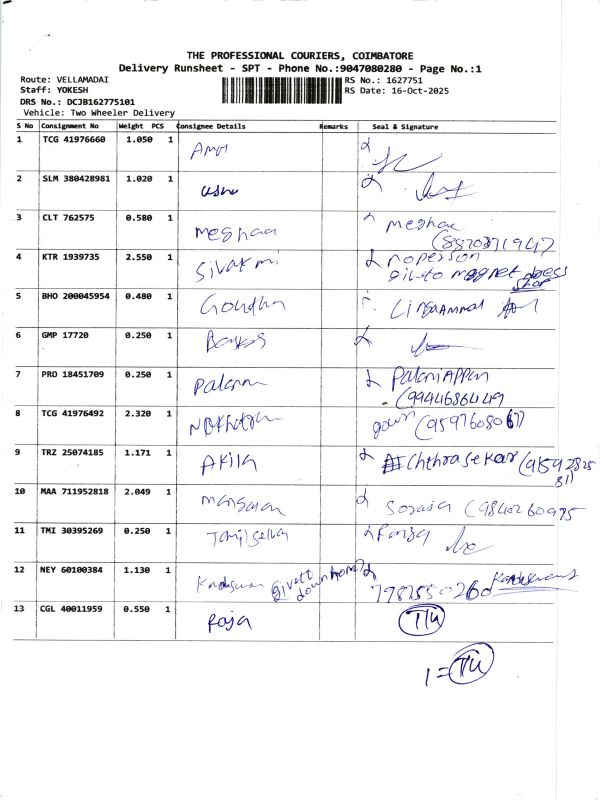 THE PROFESSIONAL COURIERS, COIMBATORE
Delivery Runsheet - SPT - Phone No.:9047080280 - Page No.:1
Route: VELLAMADAI RS No.: 1627751
Staff: YOKESH RS Date: 16-Oct-2025
DRS No.: DCJB162775101
Vehicle: Two Wheeler Delivery
S No Consignment No Weight PCS Consignee Details Remarks Seal & Signature
1 TCG 41976660 1.050 1
2 SLM 380428981 1.020 1 usha
3 CLT 762575 0.580 1 meghaa meghaa
4 KTR 1939735 2.550 1 no person
magnet
5 BHO 200045954 0.480 1 LingAAmmal
6 GMP 17720 0.250 1
7 PRO 18451709 0.250 1 PalaniAppan
(9944686449
8 TCG 41976492 2.320 1
9 TRZ 25074185 1.171 1 Akila
10 MAA 711952818 2.049 1
11 TMI 30395269 0.250 1
12 NEY 60100384 1.130 1
13 CGL 40011959 0.550 1 Raja T/U
1 = T/U